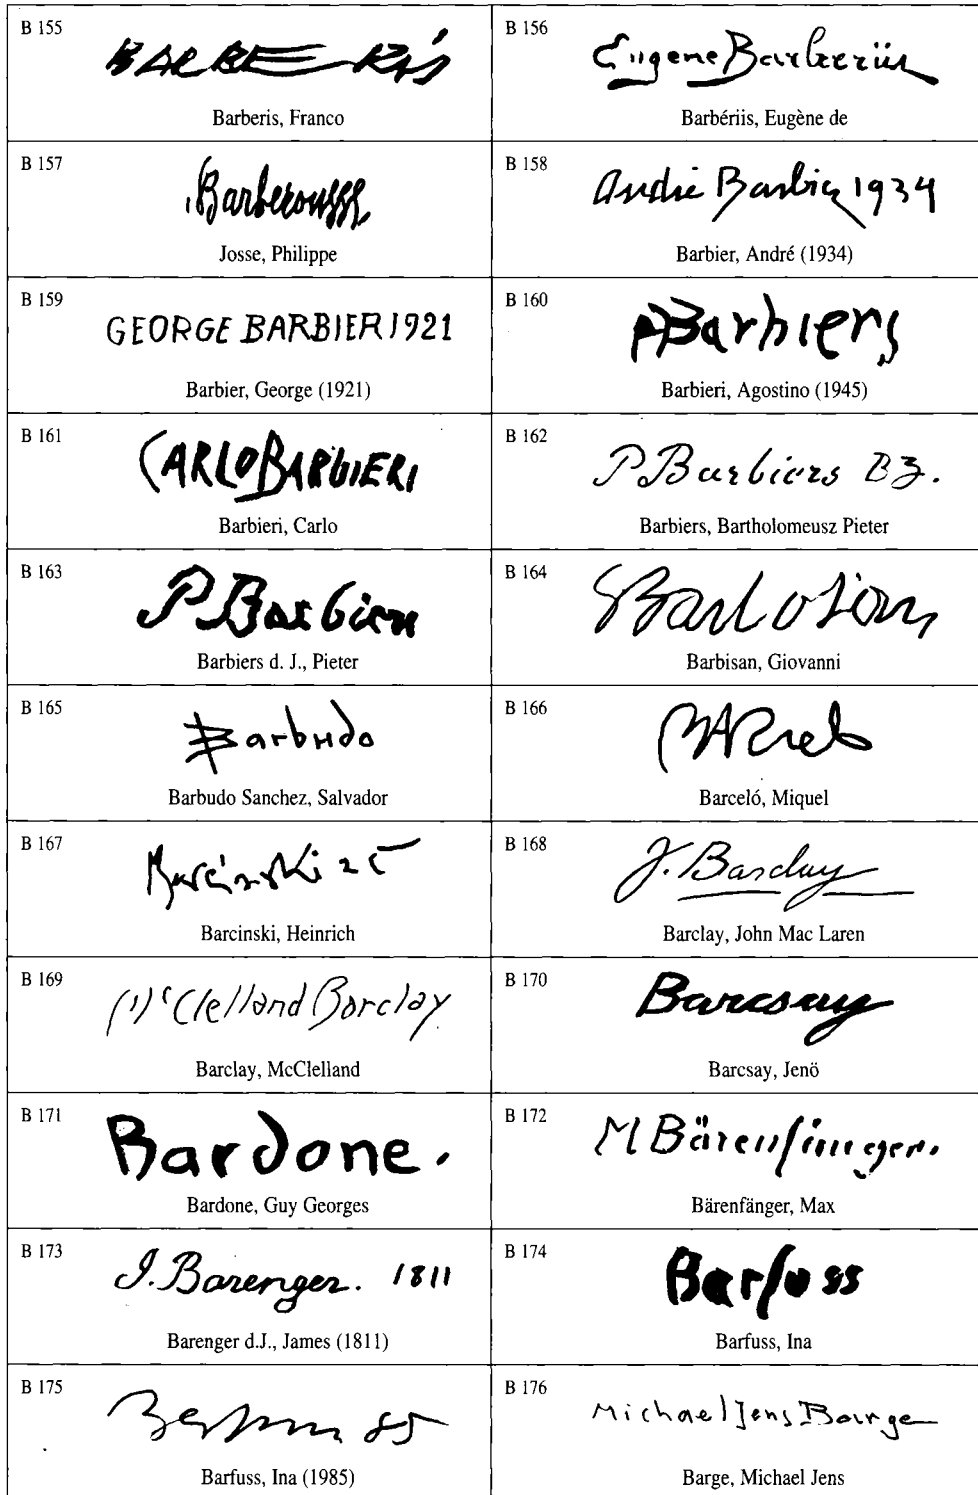 B 155
BARBERIS
Barberis, Franco
B 156
Eugene Barberiis
Barbériis, Eugène de
B 157
Barberousse
Josse, Philippe
B 158
André Barbier 1934
Barbier, André (1934)
B 159
GEORGE BARBIER 1921
Barbier, George (1921)
B 160
Barbieri, Agostino (1945)
B 161
CARLO BARBIERI
Barbieri, Carlo
B 162
P Barbiers BZ.
Barbiers, Bartholomeusz Pieter
B 163
P Barbiers
Barbiers d. J., Pieter
B 164
Barbisan, Giovanni
B 165
Barbudo
Barbudo Sanchez, Salvador
B 166
Barceló, Miquel
B 167
Barcinski 25
Barcinski, Heinrich
B 168
J. Barclay
Barclay, John Mac Laren
B 169
McClelland Barclay
Barclay, McClelland
B 170
Barcsay
Barcsay, Jenö
B 171
Bardone.
Bardone, Guy Georges
B 172
M Bärenfänger.
Bärenfänger, Max
B 173
J. Barenger. 1811
Barenger d.J., James (1811)
B 174
Barfuss
Barfuss, Ina
B 175
Barfuss 85
Barfuss, Ina (1985)
B 176
Michael Jens Barge
Barge, Michael Jens